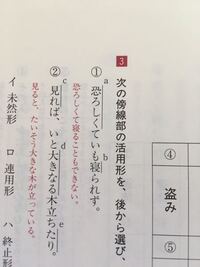 3 次の傍線部の活用形を、後から選び、
①恐ろしくていも寝られず。
a
b
恐ろしくて寝ることもできない。
②見れば、いと大きなる木立ちたり。
c
d
e
見ると、たいそう大きな木が立っている。
イ 未然形 ロ 連用形 ハ 終止形
④
盗み
⑤